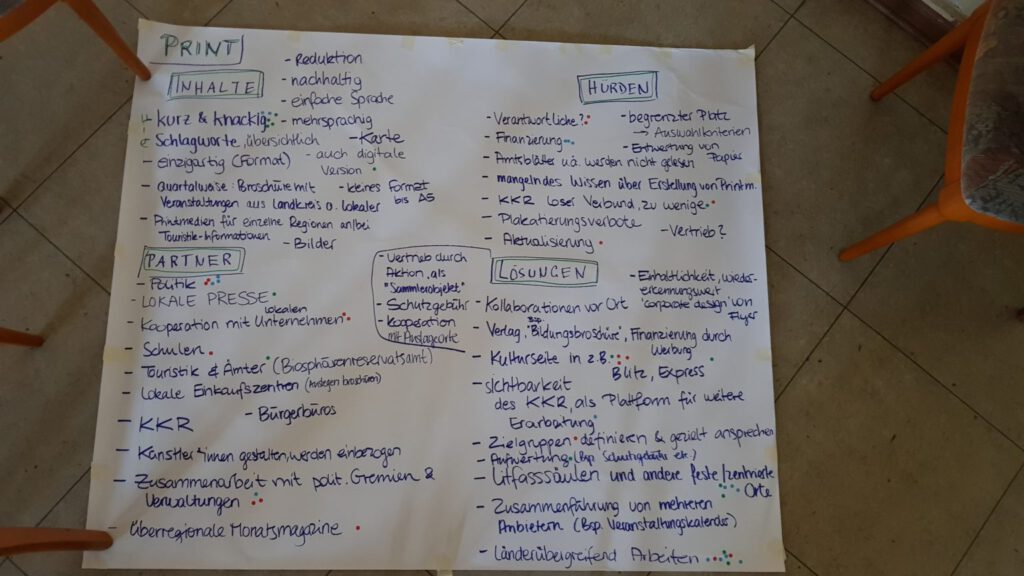 PRINT
INHALTE
- Reduktion
- nachhaltig
- einfache Sprache
- kurz & knackig
- mehrsprachig
Schlagworte, übersichtlich
- Karte
- einzigartig (Format)
- auch digitale
Version
- quartalweise: Broschüre mit
Veranstaltungen aus Landkreis o. lokaler
- kleines Format
bis A5
- Printmedien für einzelne Regionen an/bei
Touristik-Informationen
- Bilder
PARTNER
- Politik
- LOKALE PRESSE
- Kooperation mit lokalen Unternehmen
- Schulen
- Touristik & Ämter (Biosphärenreservatsamt)
- lokale Einkaufszentren (auslegen broschüren)
- Bürgerbüros
- KKR
- Künstler*innen gestalten, werden einbezogen
- Zusammenarbeit mit polit. Gremien &
Verwaltungen
- überregionale Monatsmagazine
- Vertrieb durch
Aktion, als
"Sammlerobjekt"
- Schutzgebühr
- Kooperation
mit Auslageorte
HÜRDEN
- Verantwortliche?
- begrenzter Platz
→ Auswahlkriterien
- Finanzierung
- Entwertung von
Papier
- Amtsblätter u.ä. werden nicht gelesen
- mangelndes Wissen über Erstellung von Printm.
- KKR loser Verbund, zu wenige
- Plakatierungsverbote
- Vertrieb?
- Aktualisierung
LÖSUNGEN
- Einheitlichkeit, wieder-
erkennungswert
"corporate design" von
Flyer
- Kollaborationen vor Ort
- Verlag, Bsp. "Bildungsbroschüre", Finanzierung durch
Werbung
- Kulturseite in z.B.
Blitz, Express
- Sichtbarkeit
des KKR, als Plattform für weitere
Erarbeitung
- Zielgruppen definieren & gezielt ansprechen
- Aufwertung (Bsp. Schutzgebühr etc.)
- Litfasssäulen und andere feste/zentrierte
Orte
- Zusammenführung von mehreren
Anbietern (Bsp. Veranstaltungskalender)
- Länderübergreifend Arbeiten